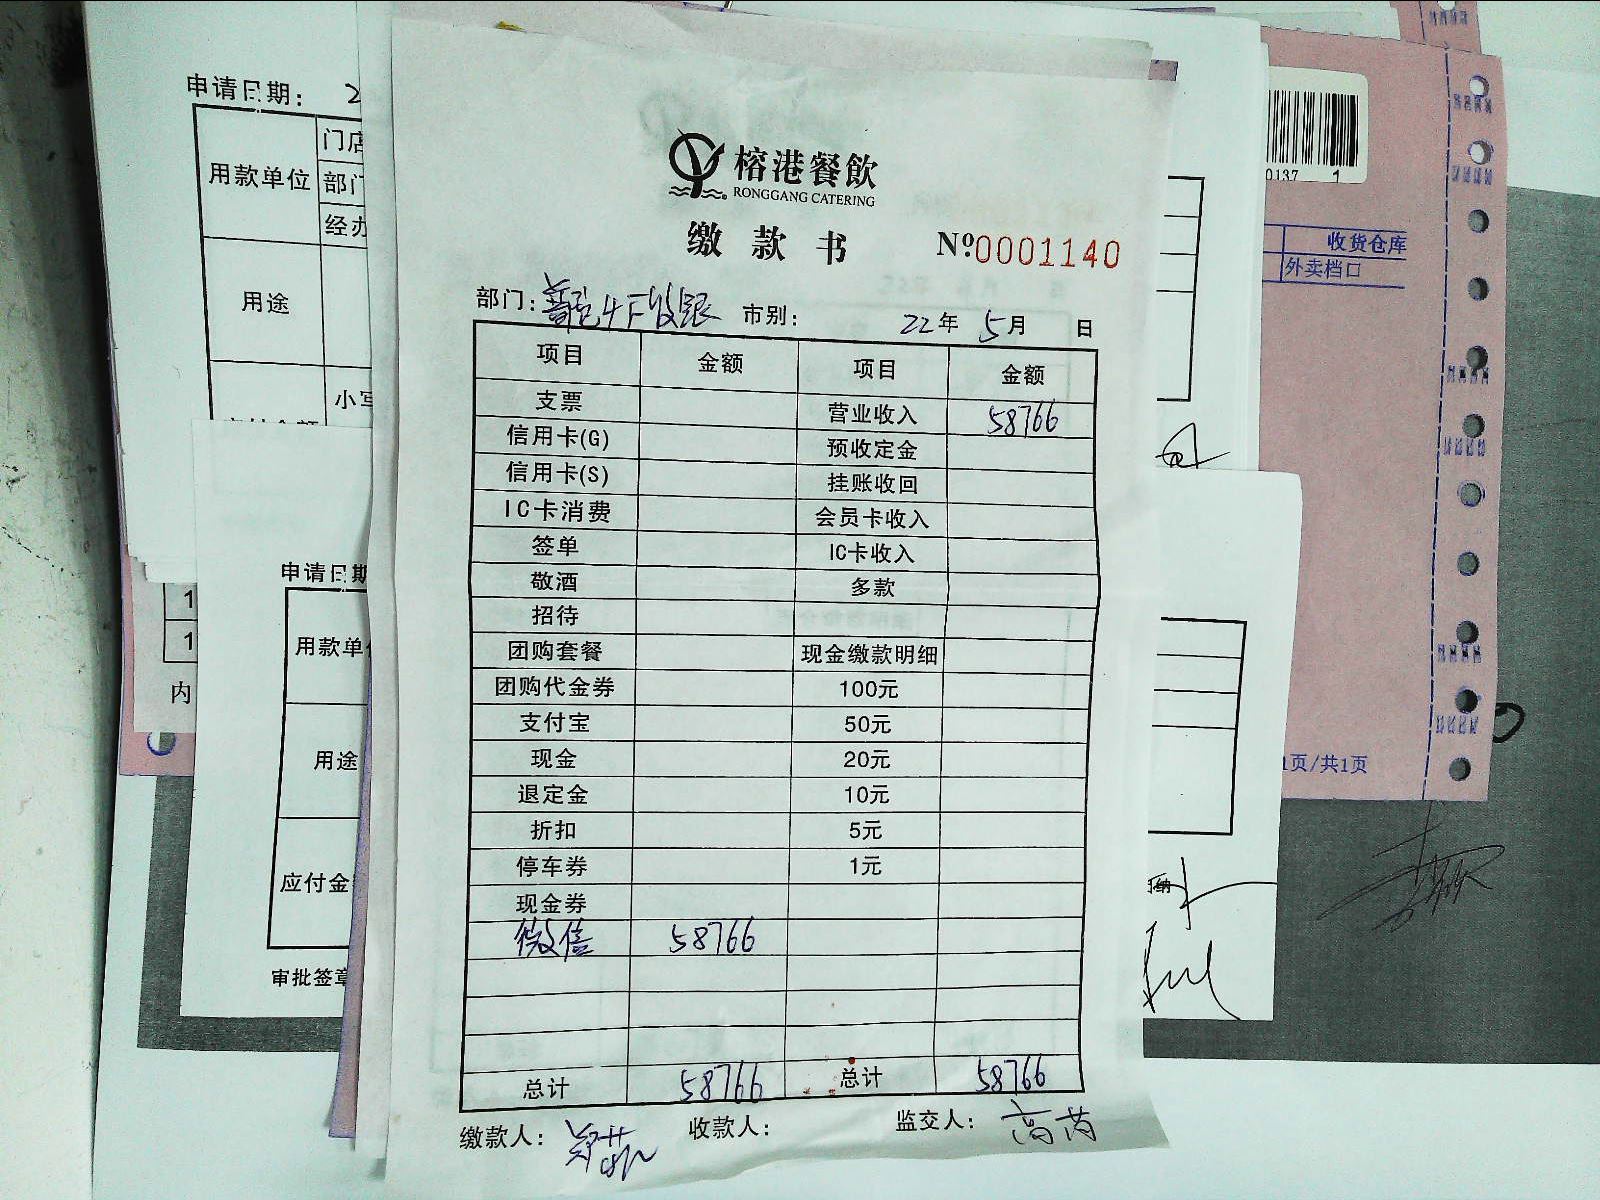 榕港餐飲
RONGGANG CATERING
缴款书 Nº:0001140
部门: 市别: 22年 5月 日
项目 金额 项目 金额
支票 营业收入 58766
信用卡(G) 预收定金
信用卡(S) 挂账收回
IC卡消费 会员卡收入
签单 IC卡收入
敬酒 多款
招待
团购套餐 现金缴款明细
团购代金券 100元
支付宝 50元
现金 20元
退定金 10元
折扣 5元
停车券 1元
现金券
微信 58766
总计 58766 总计 58766
缴款人: 收款人: 监交人:
申请日期: 2
用款单位 门店
部门
经办
用途
小写
申请日期
用款单位
用途
应付金额
审批签章
1
1
内
0137 1
收货仓库
外卖档口
1页/共1页